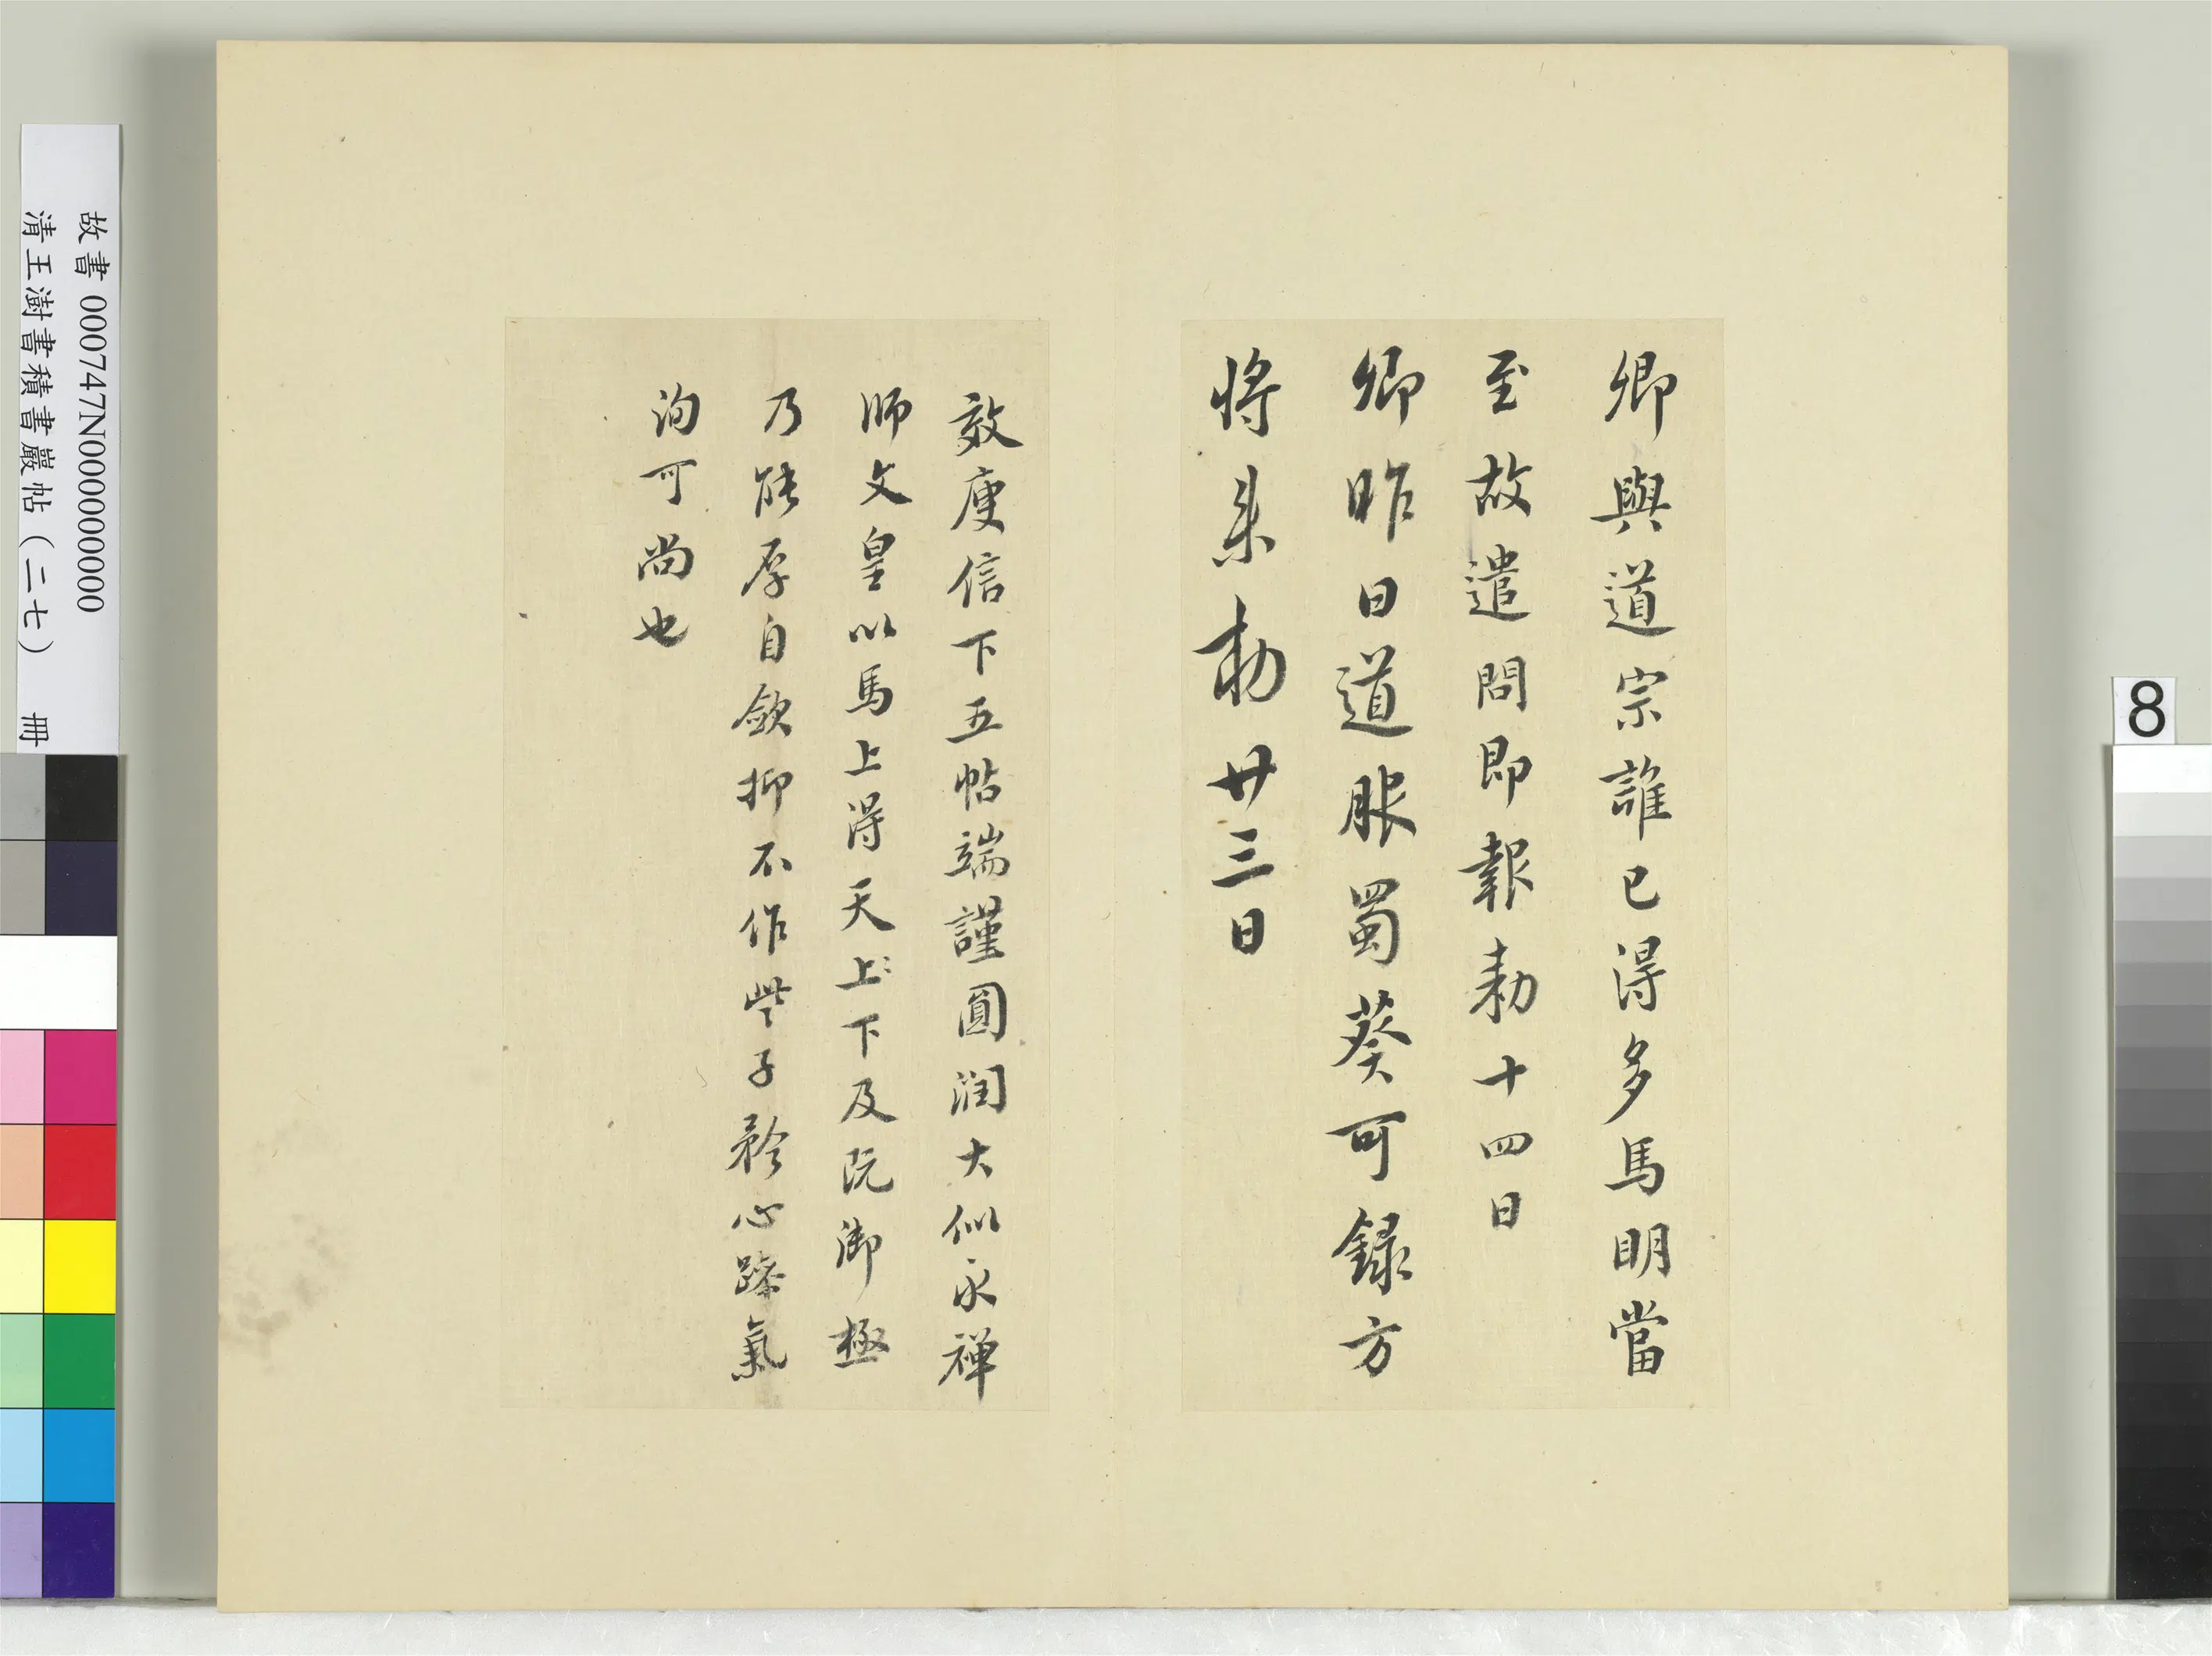 卿與道宗誰已得多馬明當
至故遣問即報勅十四日
卿昨日道服蜀葵可錄方
將來勅廿三日
效庾信下五帖端謹圓潤大似永禅
師文皇以馬上得天上〻下及阮御極
乃能厚自斂抑不作些子矜心躁氣
洵可尚也
故書 000747N000000000
清王澍書積書巖帖（二七） 冊
8